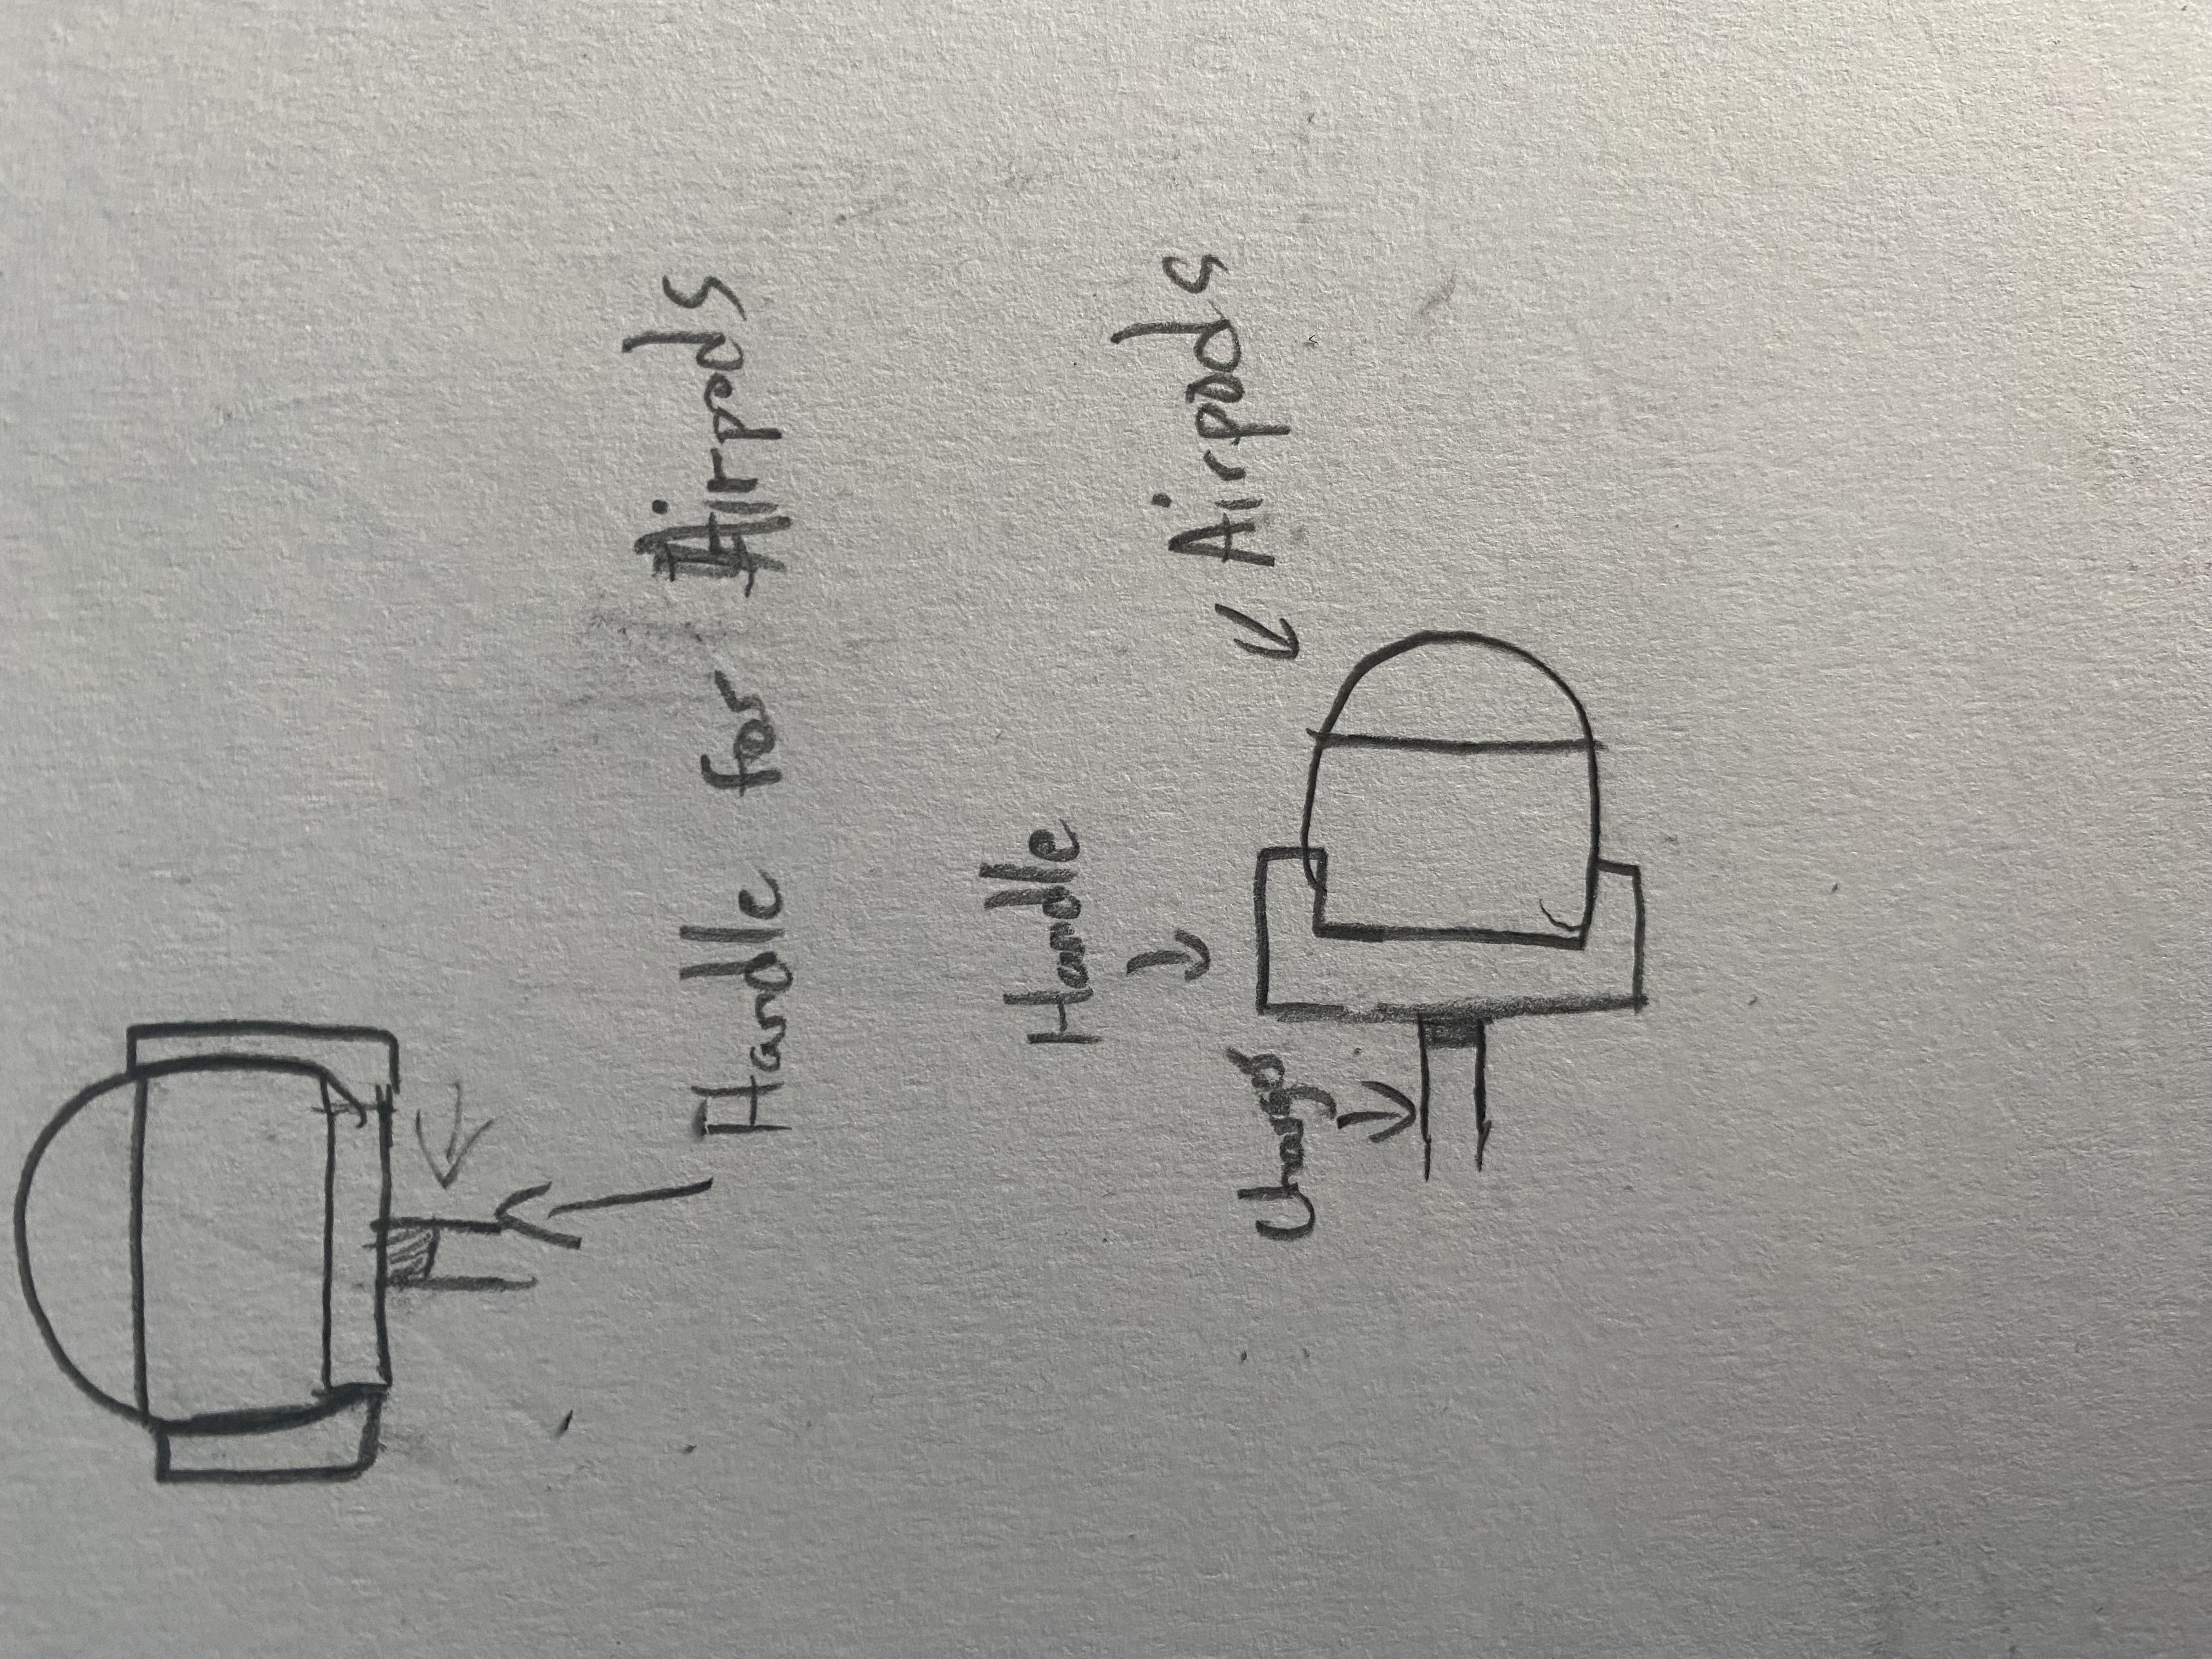 Handle for Airpods
Handle
Airpods